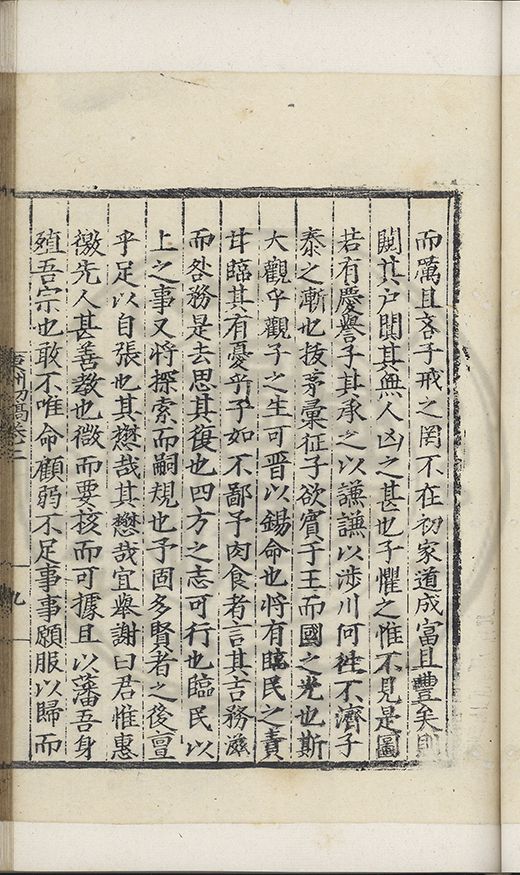 而厲且吝子戒之罔不在初家道成富且豐矣則
闚其户闃其無人凶之甚也子懼之惟不見是圖
若有慶譽子其承之以謙謙以涉川何徃不濟子
泰之漸也拔茅彙征子欲賔于王而國之光也斯
大觀乎觀子之生可晋以錫命也将有臨民之責
甘臨其有憂乎予如不鄙予肉食者言其吉務滋
而咎務是去思其復也四方之志可行也臨民以
上之事又将探索而嗣規也予固多賢者之後亶
乎足以自張也其懋哉其懋哉宜舉謝曰君惟惠
徼先人甚善教也微而要核而可據且以藩吾身
殖吾宗也敢不唯命顧弱不足事事願服以歸而
初稿卷二
九